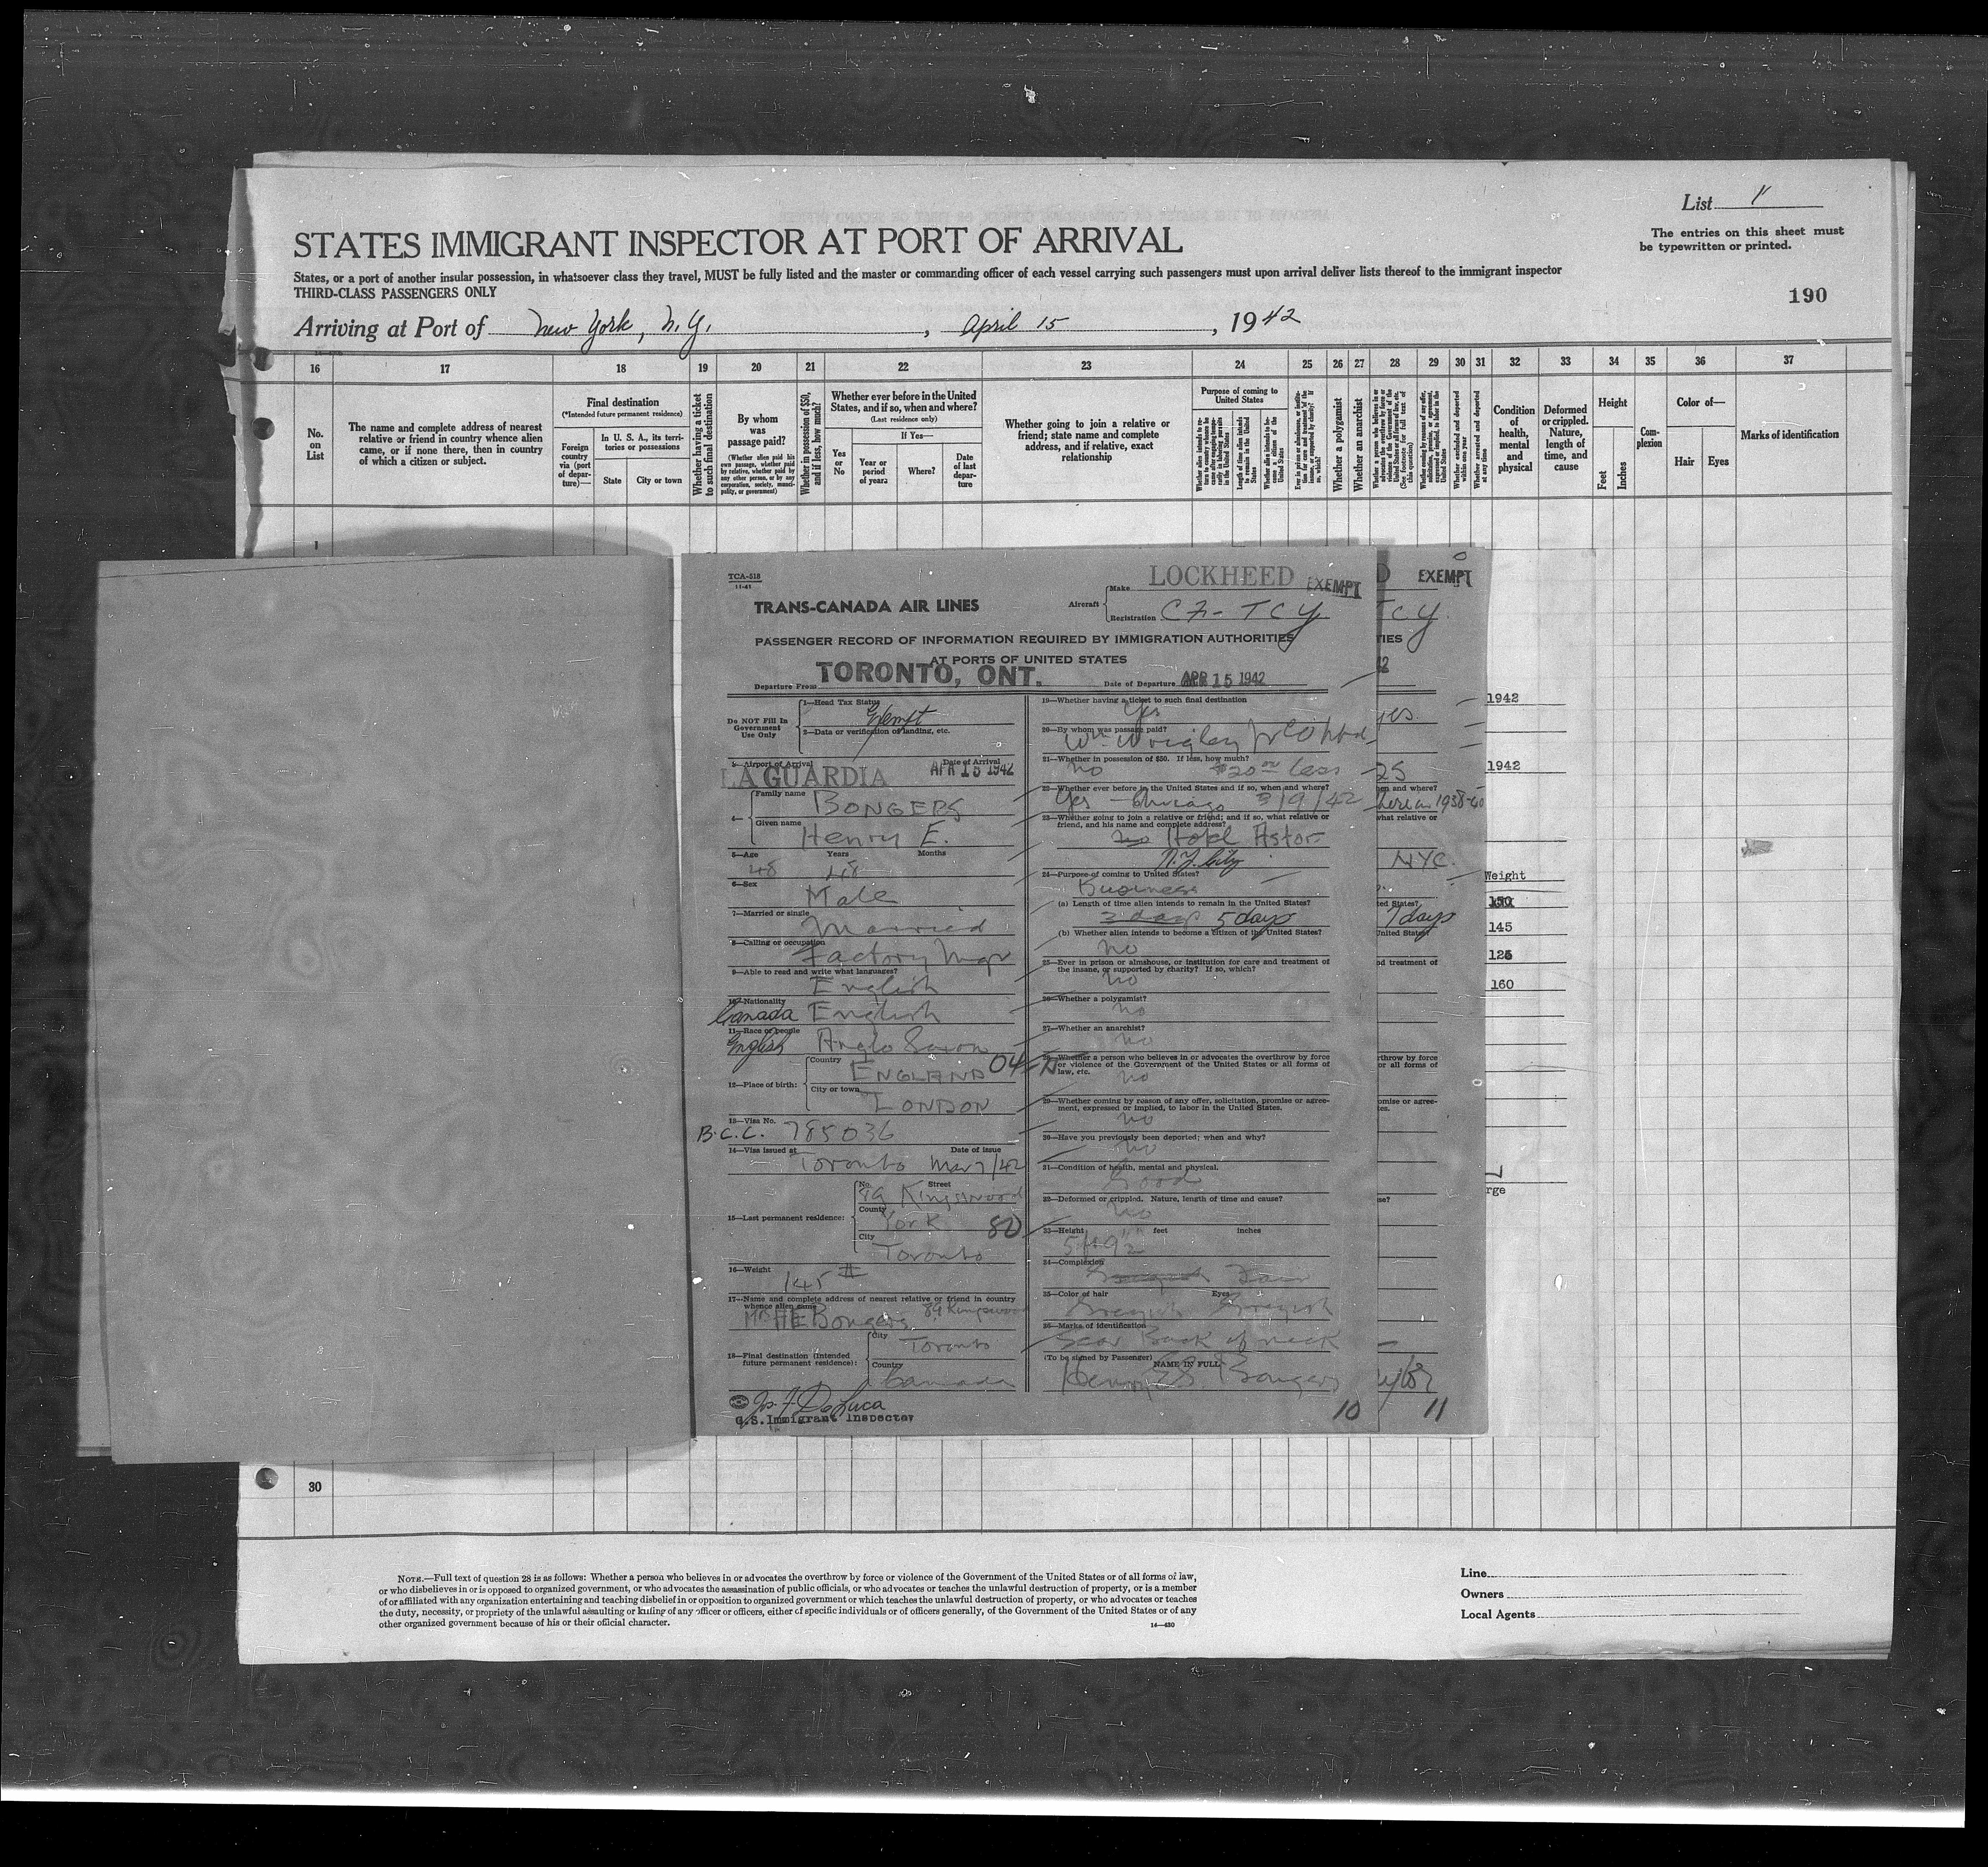 List 11
The entries on this sheet must
be typewritten or printed.
STATES IMMIGRANT INSPECTOR AT PORT OF ARRIVAL
States, or a port of another insular possession, in whatsoever class they travel, MUST be fully listed and the master or commanding officer of each vessel carrying such passengers must upon arrival deliver lists thereof to the immigrant inspector
THIRD-CLASS PASSENGERS ONLY
190
Arriving at Port of New York, N.Y., April 15, 1942
16 17 18 19 20 21 22 23 24 25 26 27 28 29 30 31 32 33 34 35 36 37
No. on List
The name and complete address of nearest
relative or friend in country whence alien
came, or if none there, then in country
of which a citizen or subject.
Final destination
(*Intended future permanent residence)
Foreign country via (port of departure)—
In U. S. A., its territories or possessions
State
City or town
Whether having a ticket to such final destination
By whom was passage paid?
(Whether alien paid his own passage, whether paid by relative, whether paid by any other person, or by any corporation, society, municipality, or government)
Whether in possession of $50, and if less, how much?
Whether ever before in the United
States, and if so, when and where?
(Last residence only)
If Yes—
Yes or No
Year or period of years
Where?
Date of last departure
Whether going to join a relative or
friend; state name and complete
address, and if relative, exact
relationship
Purpose of coming to United States
Whether a polygamist
Whether an anarchist
Condition of health, mental and physical
Deformed or crippled. Nature, length of time, and cause
Height
Feet
Inches
Complexion
Color of—
Hair
Eyes
Marks of identification
1
TCA-518
11-41
TRANS-CANADA AIR LINES
Aircraft
Make LOCKHEED EXEMPT
Registration CF-TCY
PASSENGER RECORD OF INFORMATION REQUIRED BY IMMIGRATION AUTHORITIES
AT PORTS OF UNITED STATES
Departure From TORONTO, ONT.
Date of Departure APR 15 1942
Do NOT Fill In
Government
Use Only
1—Head Tax Status
Exempt
2—Data or verification of landing, etc.
3—Airport of Arrival LA GUARDIA
Date of Arrival APR 15 1942
4—
Family name BONGERS
Given name Henry E.
5—Age Years Months
48 48
6—Sex
Male
7—Married or single
Married
8—Calling or occupation
Factory Mgr
9—Able to read and write what languages?
English
10—Nationality
Canada English
11—Race or people
English Anglo Saxon
12—Place of birth:
Country
ENGLAND
City or town
LONDON
13—Visa No.
B.C.C. 785036
14—Visa issued at Date of issue
Toronto Mar 7/42
15—Last permanent residence:
No. Street
89 Kingswood
County
York 80
City
Toronto
16—Weight
145 #
17—Name and complete address of nearest relative or friend in country
whence alien came
Mrs HE Bongers 89 Kingswood
18—Final destination (Intended
future permanent residence):
City
Toronto
Country
Canada
Jos. F. DeLuca
U.S. Immigrant Inspector
19—Whether having a ticket to such final destination
Yes
20—By whom was passage paid?
Wm Wrigley Jr Co
21—Whether in possession of $50. If less, how much?
No $20 00 less
22—Whether ever before in the United States and if so, when and where?
Yes - Chicago 3/9/42
23—Whether going to join a relative or friend; and if so, what relative or
friend, and his name and complete address?
Hotel Astor
N.Y. City
24—Purpose of coming to United States?
Business
(a) Length of time alien intends to remain in the United States?
3 days 5 days
(b) Whether alien intends to become a citizen of the United States?
No
25—Ever in prison or almshouse, or institution for care and treatment of
the insane, or supported by charity? If so, which?
No
26—Whether a polygamist?
No
27—Whether an anarchist?
No
28—Whether a person who believes in or advocates the overthrow by force
or violence of the Government of the United States or all forms of
law, etc.
No
29—Whether coming by reason of any offer, solicitation, promise or agree-
ment, expressed or implied, to labor in the United States.
No
30—Have you previously been deported; when and why?
No
31—Condition of health, mental and physical.
Good
32—Deformed or crippled. Nature, length of time and cause?
No
33—Height feet inches
34—Complexion
Fair
35—Color of hair Eyes
Greyish Greyish
36—Marks of identification
Scar Back of neck
(To be signed by Passenger) NAME IN FULL
Henry E. Bongers
10
EXEMPT
TCY
TIES
yes
25
1938-40
what relative or
NYC
7 days
od treatment of
throw by force
or all forms of
omise or agree-
11
1942
1942
Weight
145
160
30
NOTE.—Full text of question 28 is as follows: Whether a person who believes in or advocates the overthrow by force or violence of the Government of the United States or of all forms of law,
or who disbelieves in or is opposed to organized government, or who advocates the assassination of public officials, or who advocates or teaches the unlawful destruction of property, or is a member
of or affiliated with any organization entertaining and teaching disbelief in or opposition to organized government or which teaches the unlawful destruction of property, or who advocates or teaches
the duty, necessity, or propriety of the unlawful assaulting or killing of any officer or officers, either of specific individuals or of officers generally, of the Government of the United States or of any
other organized government because of his or their official character.
14—430
Line
Owners
Local Agents